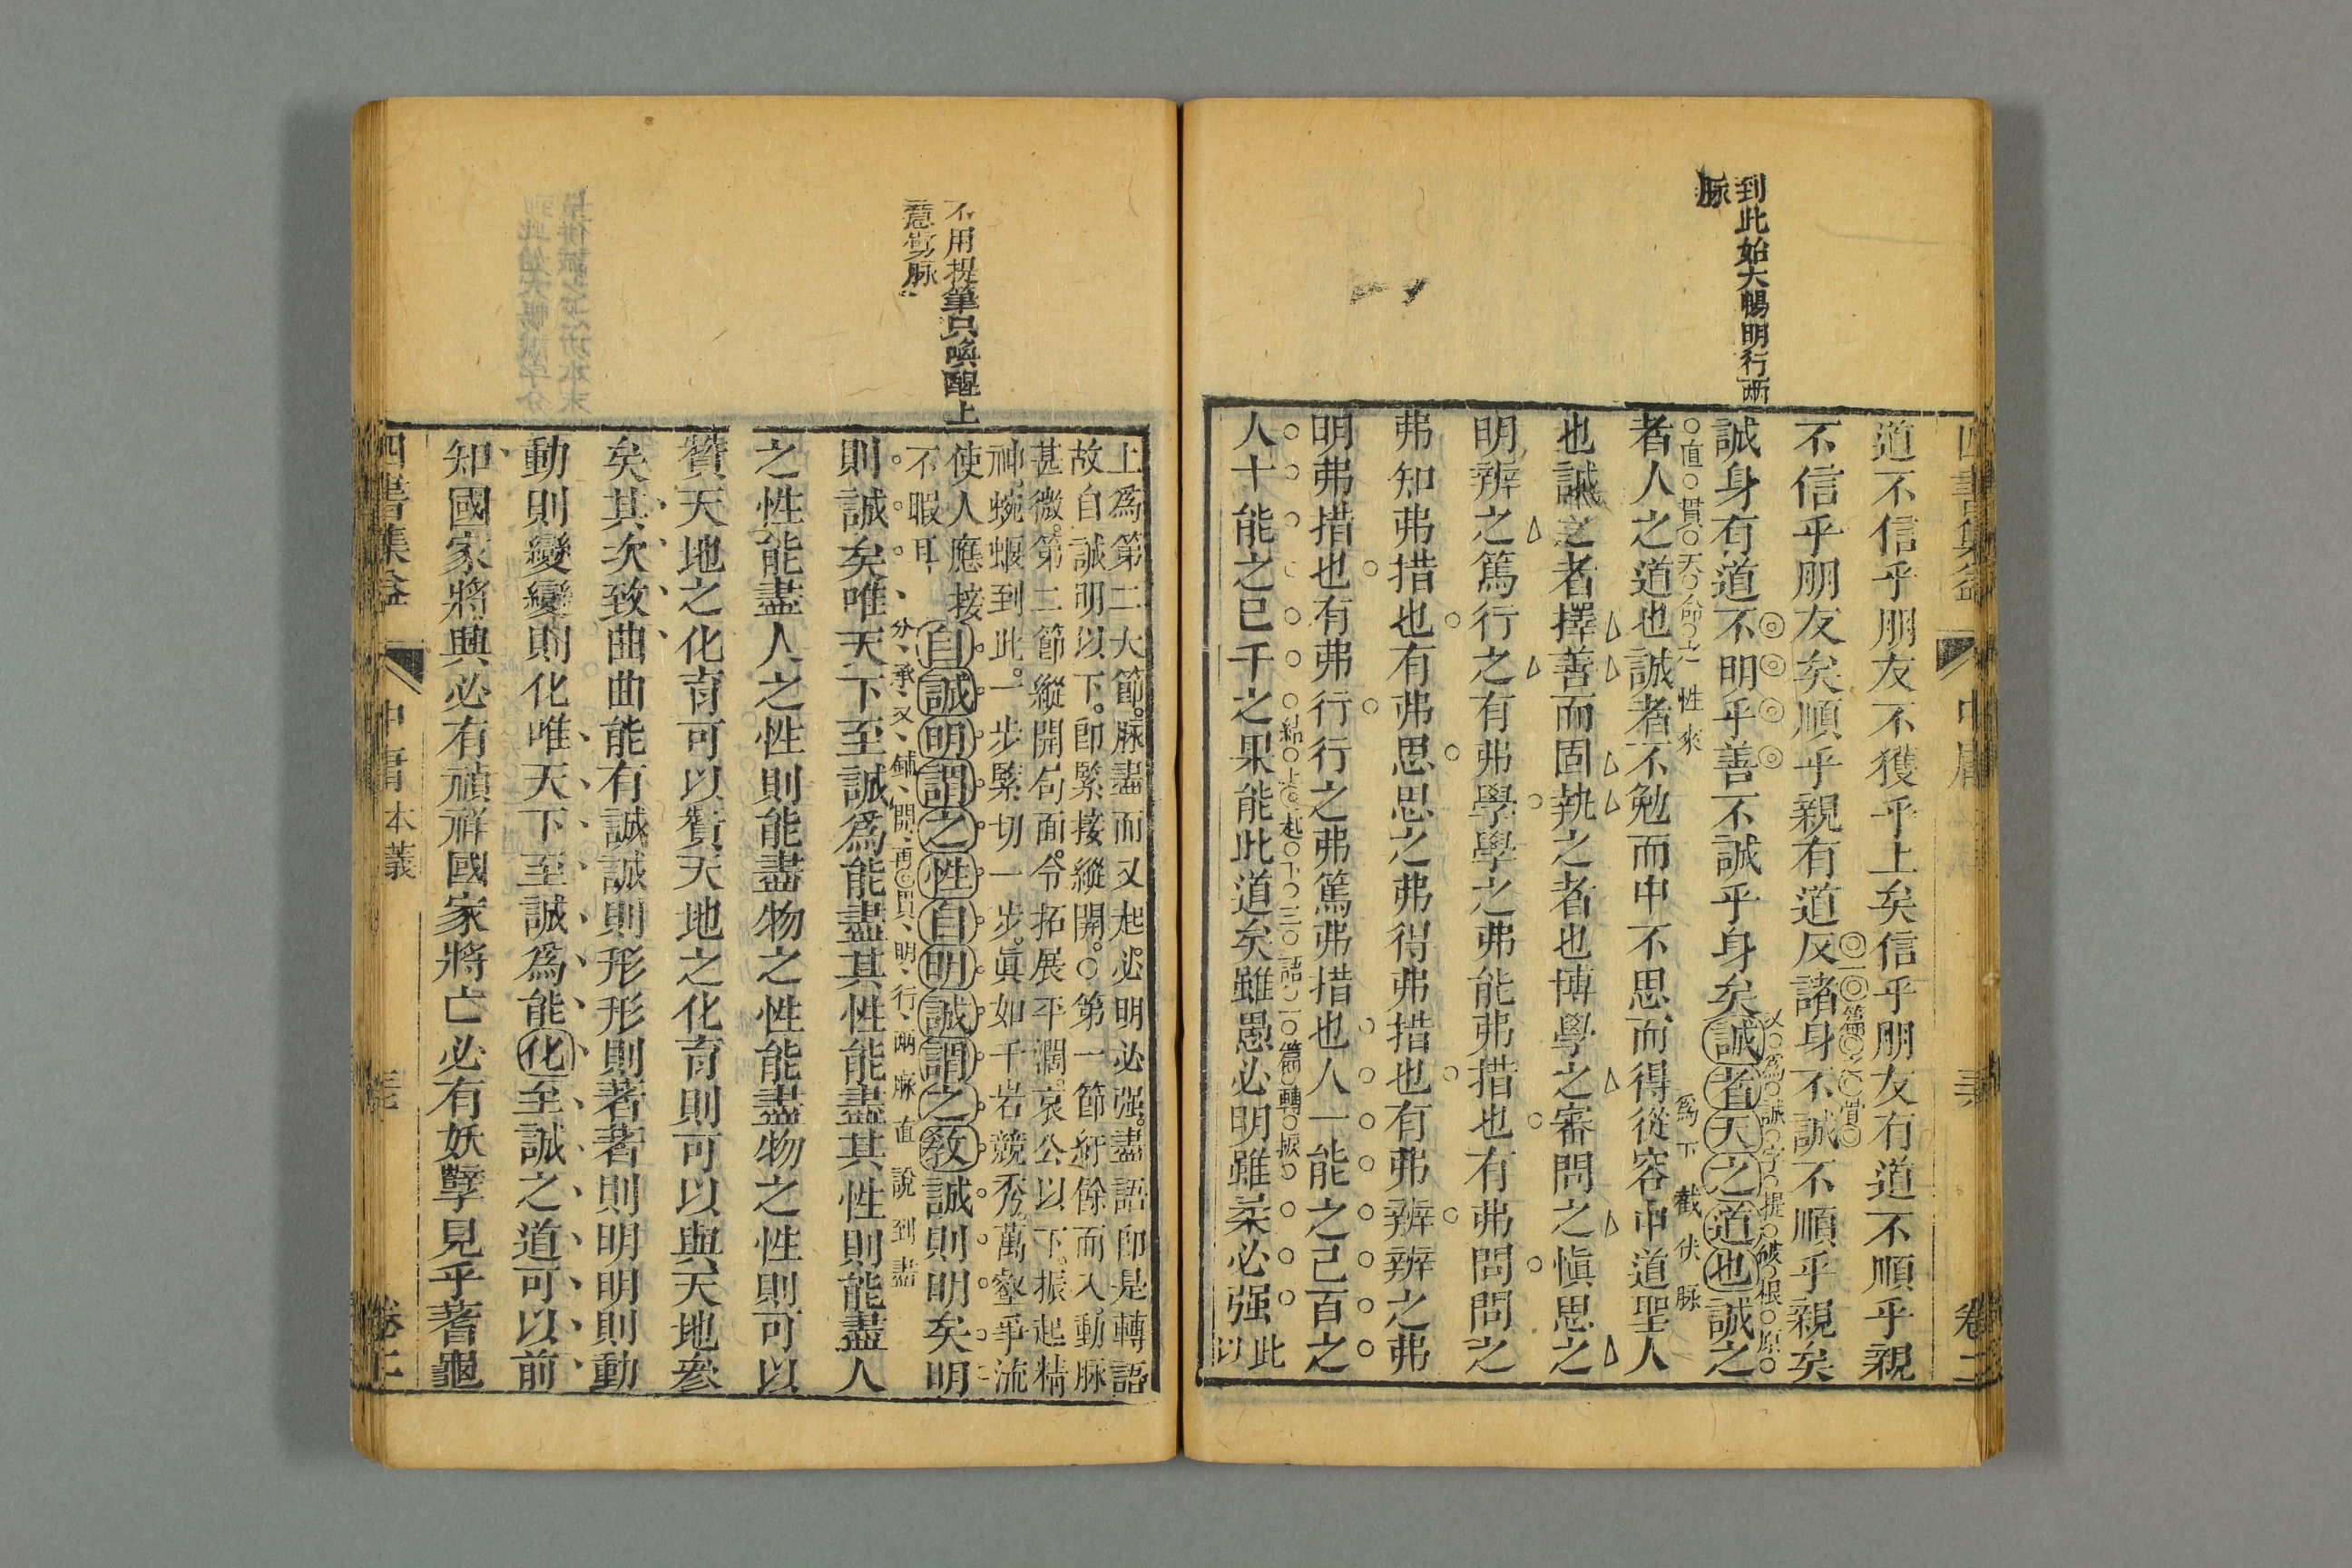 到此始大暢明行兩
脉
道不信乎朋友不獲乎上矣信乎朋友有道不順乎親
不信乎朋友矣順乎親有道反諸身不誠不順乎親矣
一篇之骨
誠身有道不明乎善不誠乎身矣誠者天之道也誠之
以爲誠字提破根原
者人之道也誠者不勉而中不思而得從容中道聖人
直貫天命之性來
爲下截伏脉
也誠之者擇善而固執之者也博學之審問之愼思之
明辨之篤行之有弗學學之弗能弗措也有弗問問之
弗知弗措也有弗思思之弗得弗措也有弗辨辨之弗
明弗措也有弗行行之弗篤弗措也人一能之己百之
人十能之己千之果能此道矣雖愚必明雖柔必强
此
以
四書集益
中庸
卷二
不用提筆只喚醒上
意
脉
上爲第二大節脉盡而又起必明必强盡語卽是轉語
故自誠明以下卽緊接縱開○第一節紆餘而入動脉
甚微第二節縱開局面令拓展平濶哀公以下振起精
神蜿蝘到此一步緊切一步眞如千岩競秀萬壑爭流
使人應接
不暇耳
自誠明謂之性自明誠謂之敎誠則明矣明
則誠矣唯天下至誠爲能盡其性能盡其性則能盡人
分承又鋪開再貫明行兩脉直說到盡
之性能盡人之性則能盡物之性能盡物之性則可以
贊天地之化育可以贊天地之化育則可以與天地參
矣其次致曲曲能有誠誠則形形則著著則明明則動
動則變變則化唯天下至誠爲能化至誠之道可以前
知國家將興必有禎祥國家將亡必有妖孼見乎蓍龜
四書集益
中庸本義
卷二